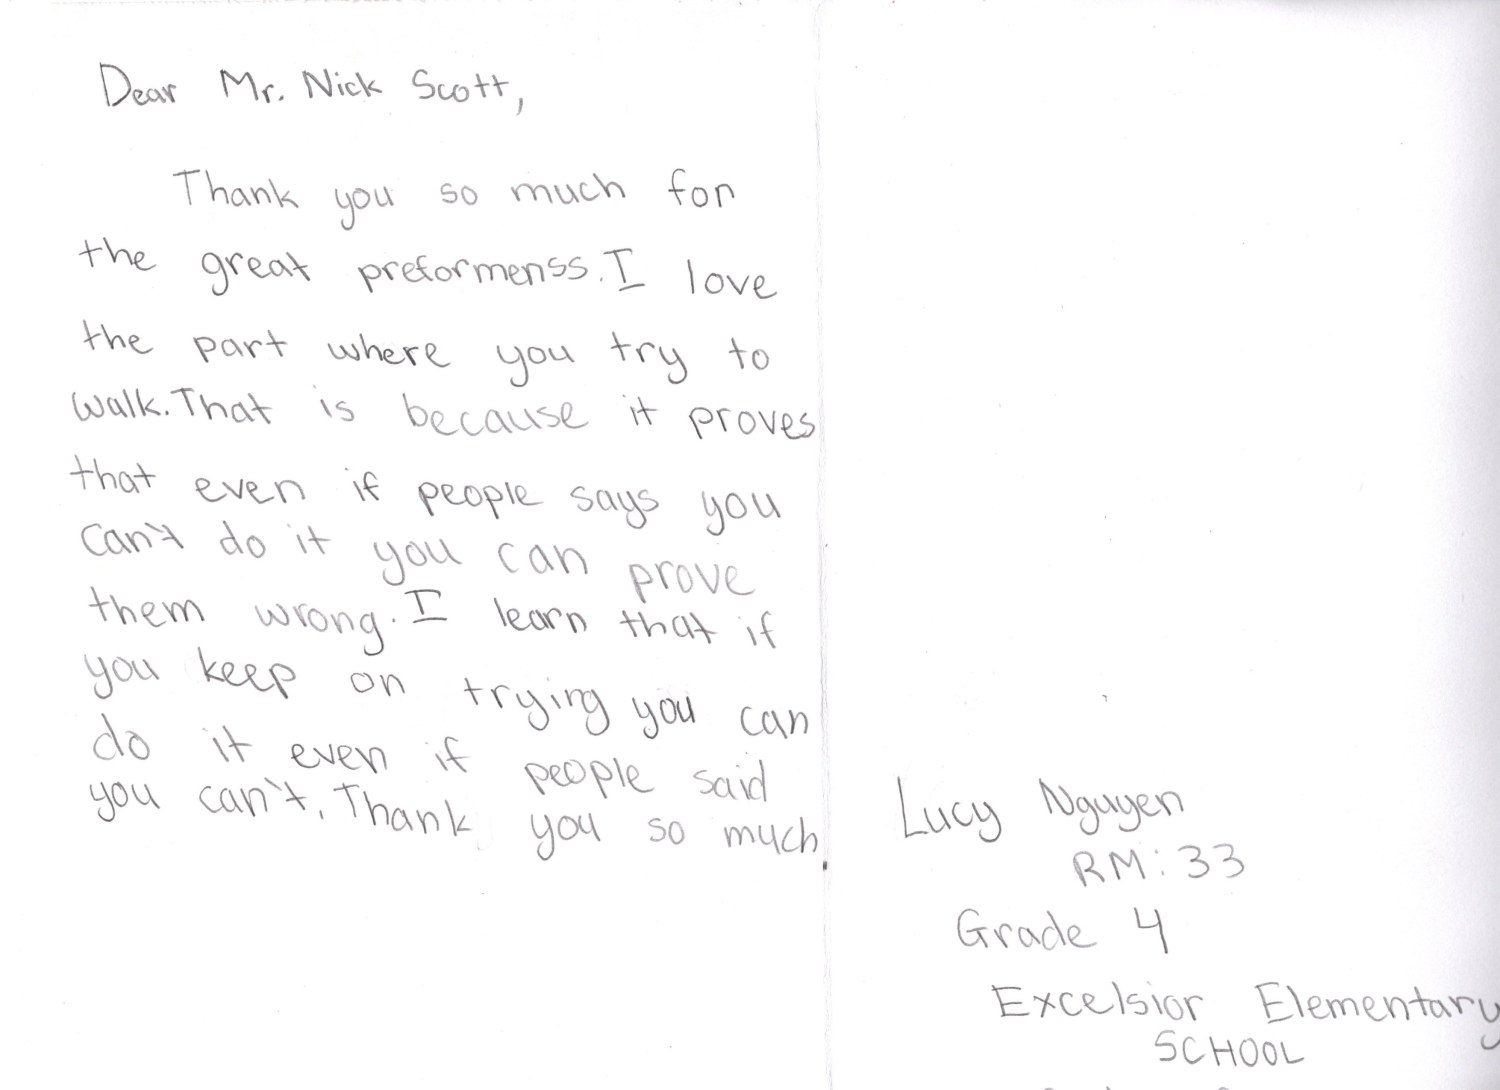 Dear Mr. Nick Scott,
Thank you so much for
the great preformenss. I love
the part where you try to
walk. That is because it proves
that even if people says you
can't do it you can prove
them wrong. I learn that if
you keep on trying you can
do it even if people said
you can't. Thank you so much.
Lucy Nguyen
RM: 33
Grade 4
Excelsior Elementary
SCHOOL